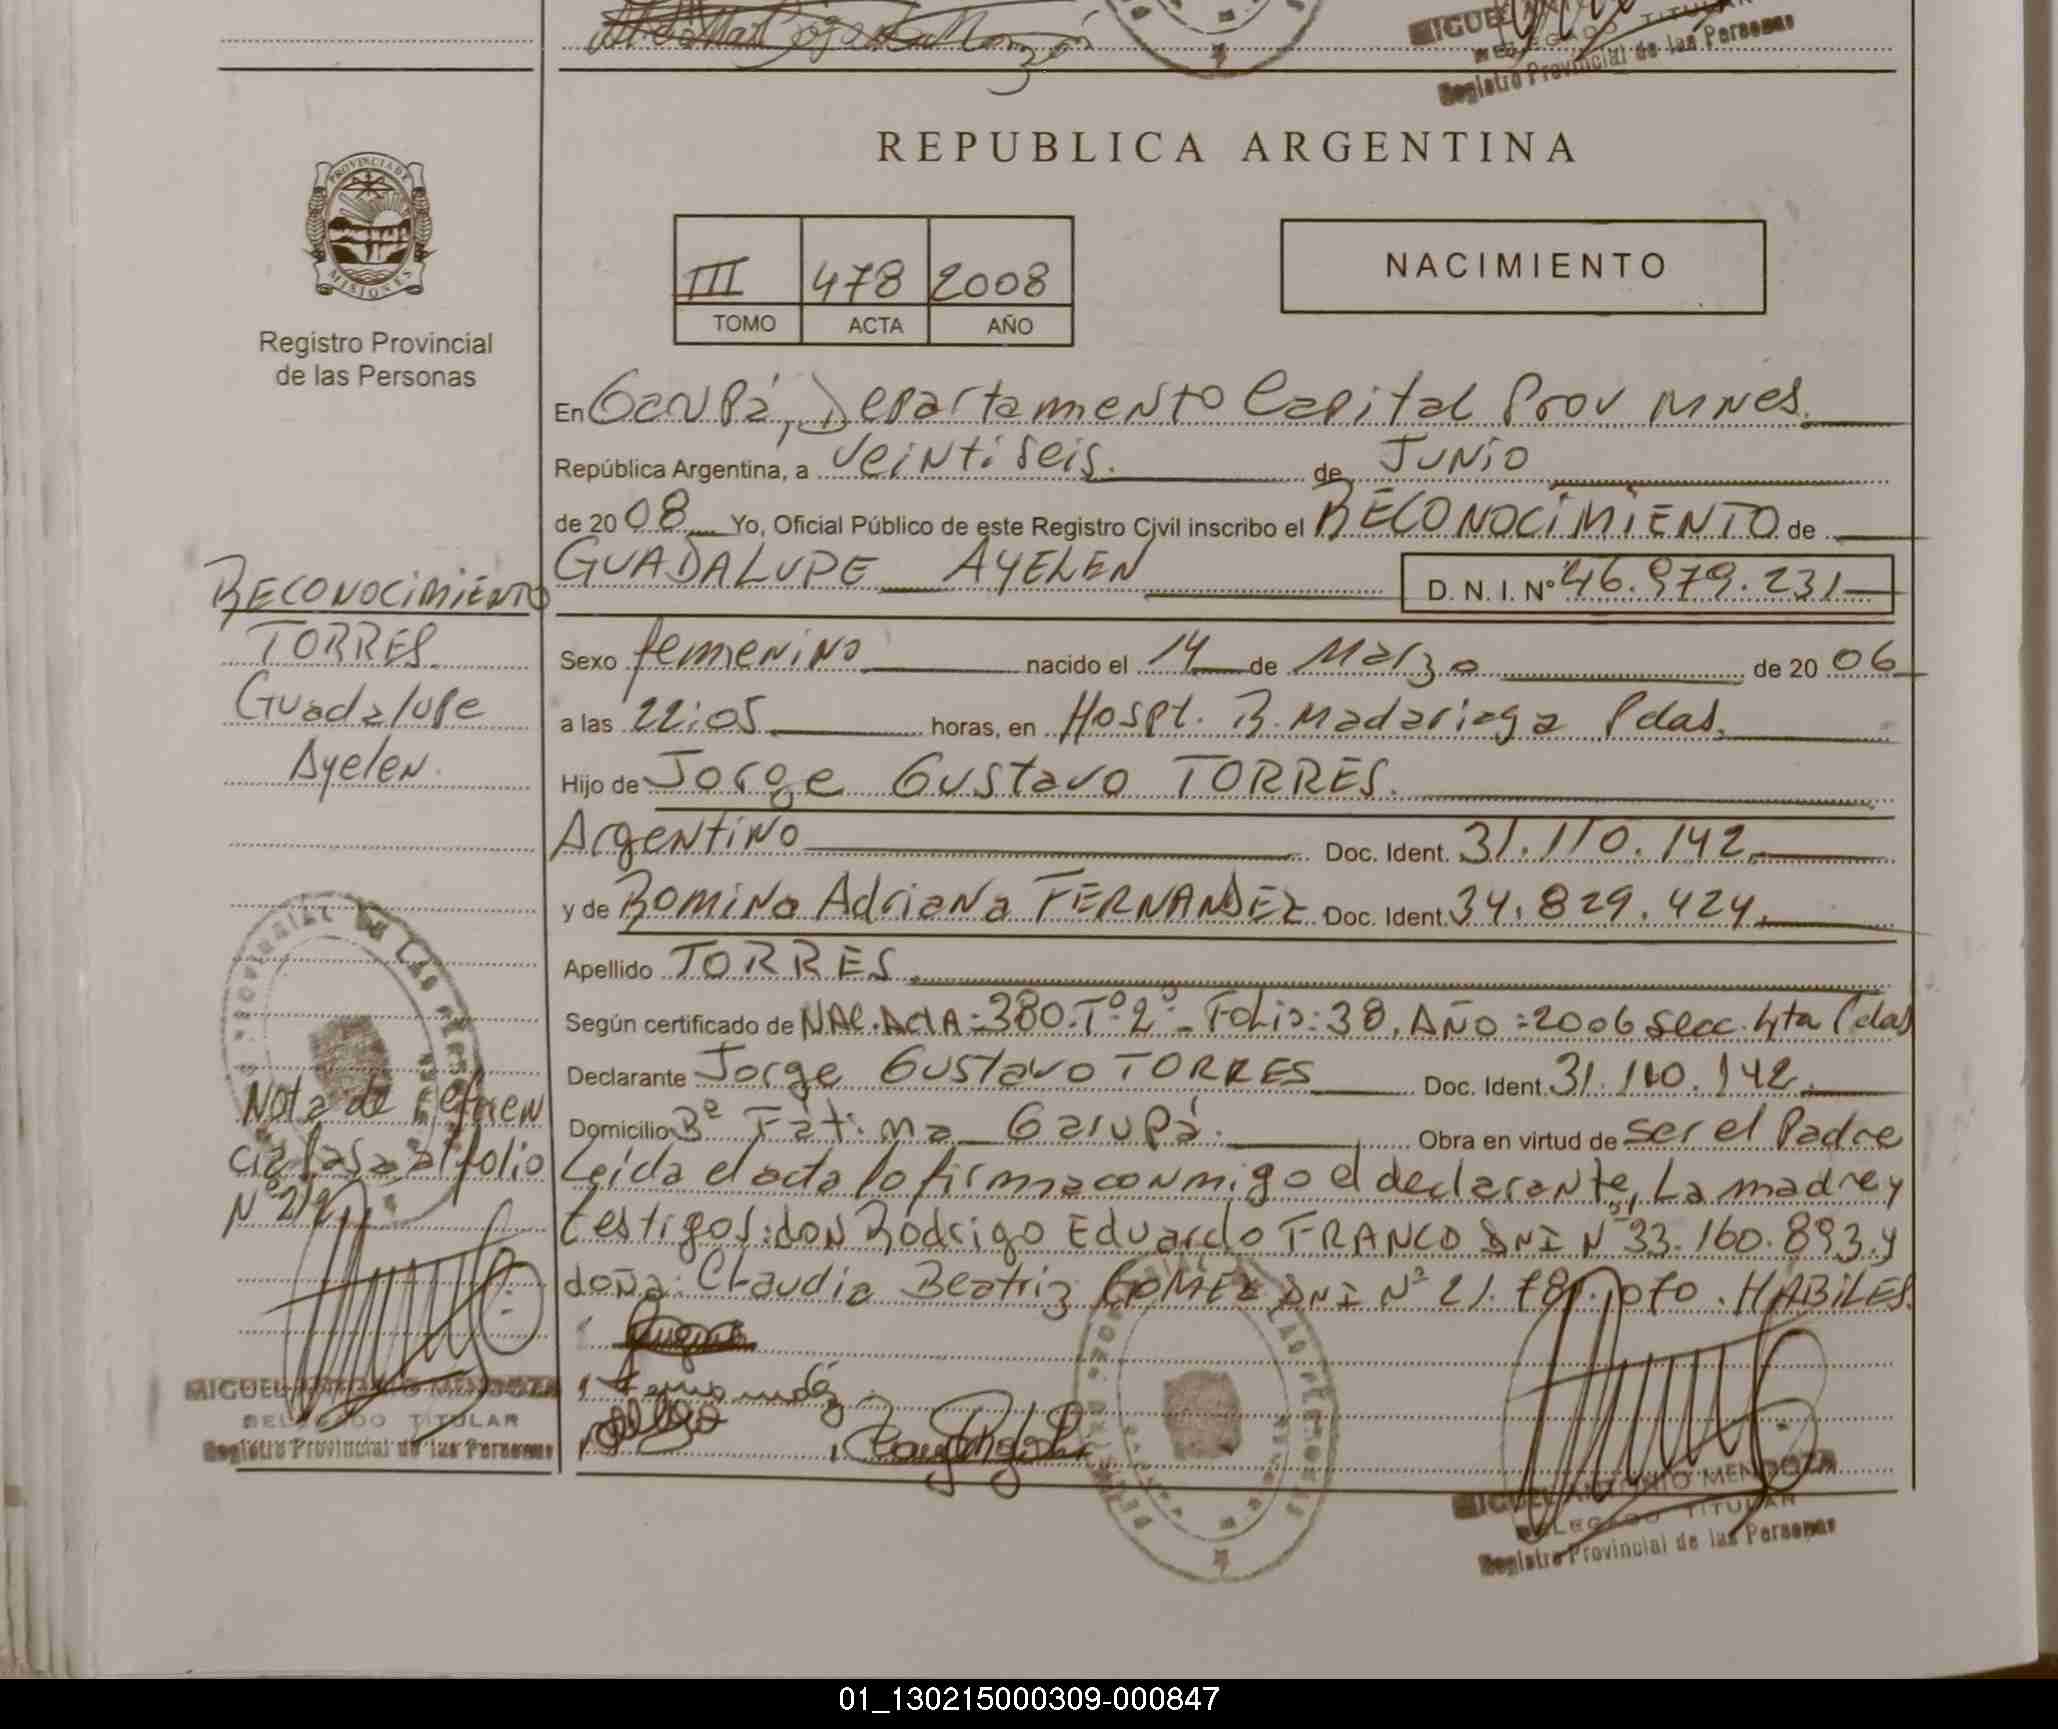 MIGUEL
DELEGADO TITULAR
Registro Provincial de las Personas
REPUBLICA ARGENTINA
PROVINCIA DE
MISIONES
Registro Provincial
de las Personas
III 478 2008
TOMO ACTA AÑO
NACIMIENTO
En Garupá, Departamento Capital Prov Mnes.
República Argentina, a veintiseis. de Junio
de 2008 Yo, Oficial Público de este Registro Civil inscribo el RECONOCIMIENTO de
GUADALUPE AYELEN D. N. I. Nº 46.979.231
RECONOCIMIENTO
TORRES
Guadalupe
Ayelen.
Sexo femenino nacido el 14 de Marzo de 2006
a las 22:05 horas, en Hospt. R. Madariaga Pdas.
Hijo de Jorge Gustavo TORRES.
Argentino Doc. Ident. 31.110.142
y de Romina Adriana FERNANDEZ Doc. Ident. 34.829.424
Apellido TORRES
Según certificado de NAC. Acta: 380. Tº 2º - Folio: 38. AÑO: 2006 Secc. 4ta Pdas
Declarante Jorge Gustavo TORRES Doc. Ident. 31.110.142.
Domicilio Bº Fátima Garupá. Obra en virtud de ser el Padre
Leída el acta lo firma conmigo el declarante, La madre y
testigos: don Rodrigo Eduardo FRANCO DNI Nº 33.160.893 y
doña: Claudia Beatriz GOMEZ DNI Nº 21. HABILES.
Nota de referen
cia pasa al folio
Nº 212
MIGUEL ANTONIO MENDOZA
DELEGADO TITULAR
Registro Provincial de las Personas
MIGUEL ANTONIO MENDOZA
DELEGADO TITULAR
Registro Provincial de las Personas
01_130215000309-000847